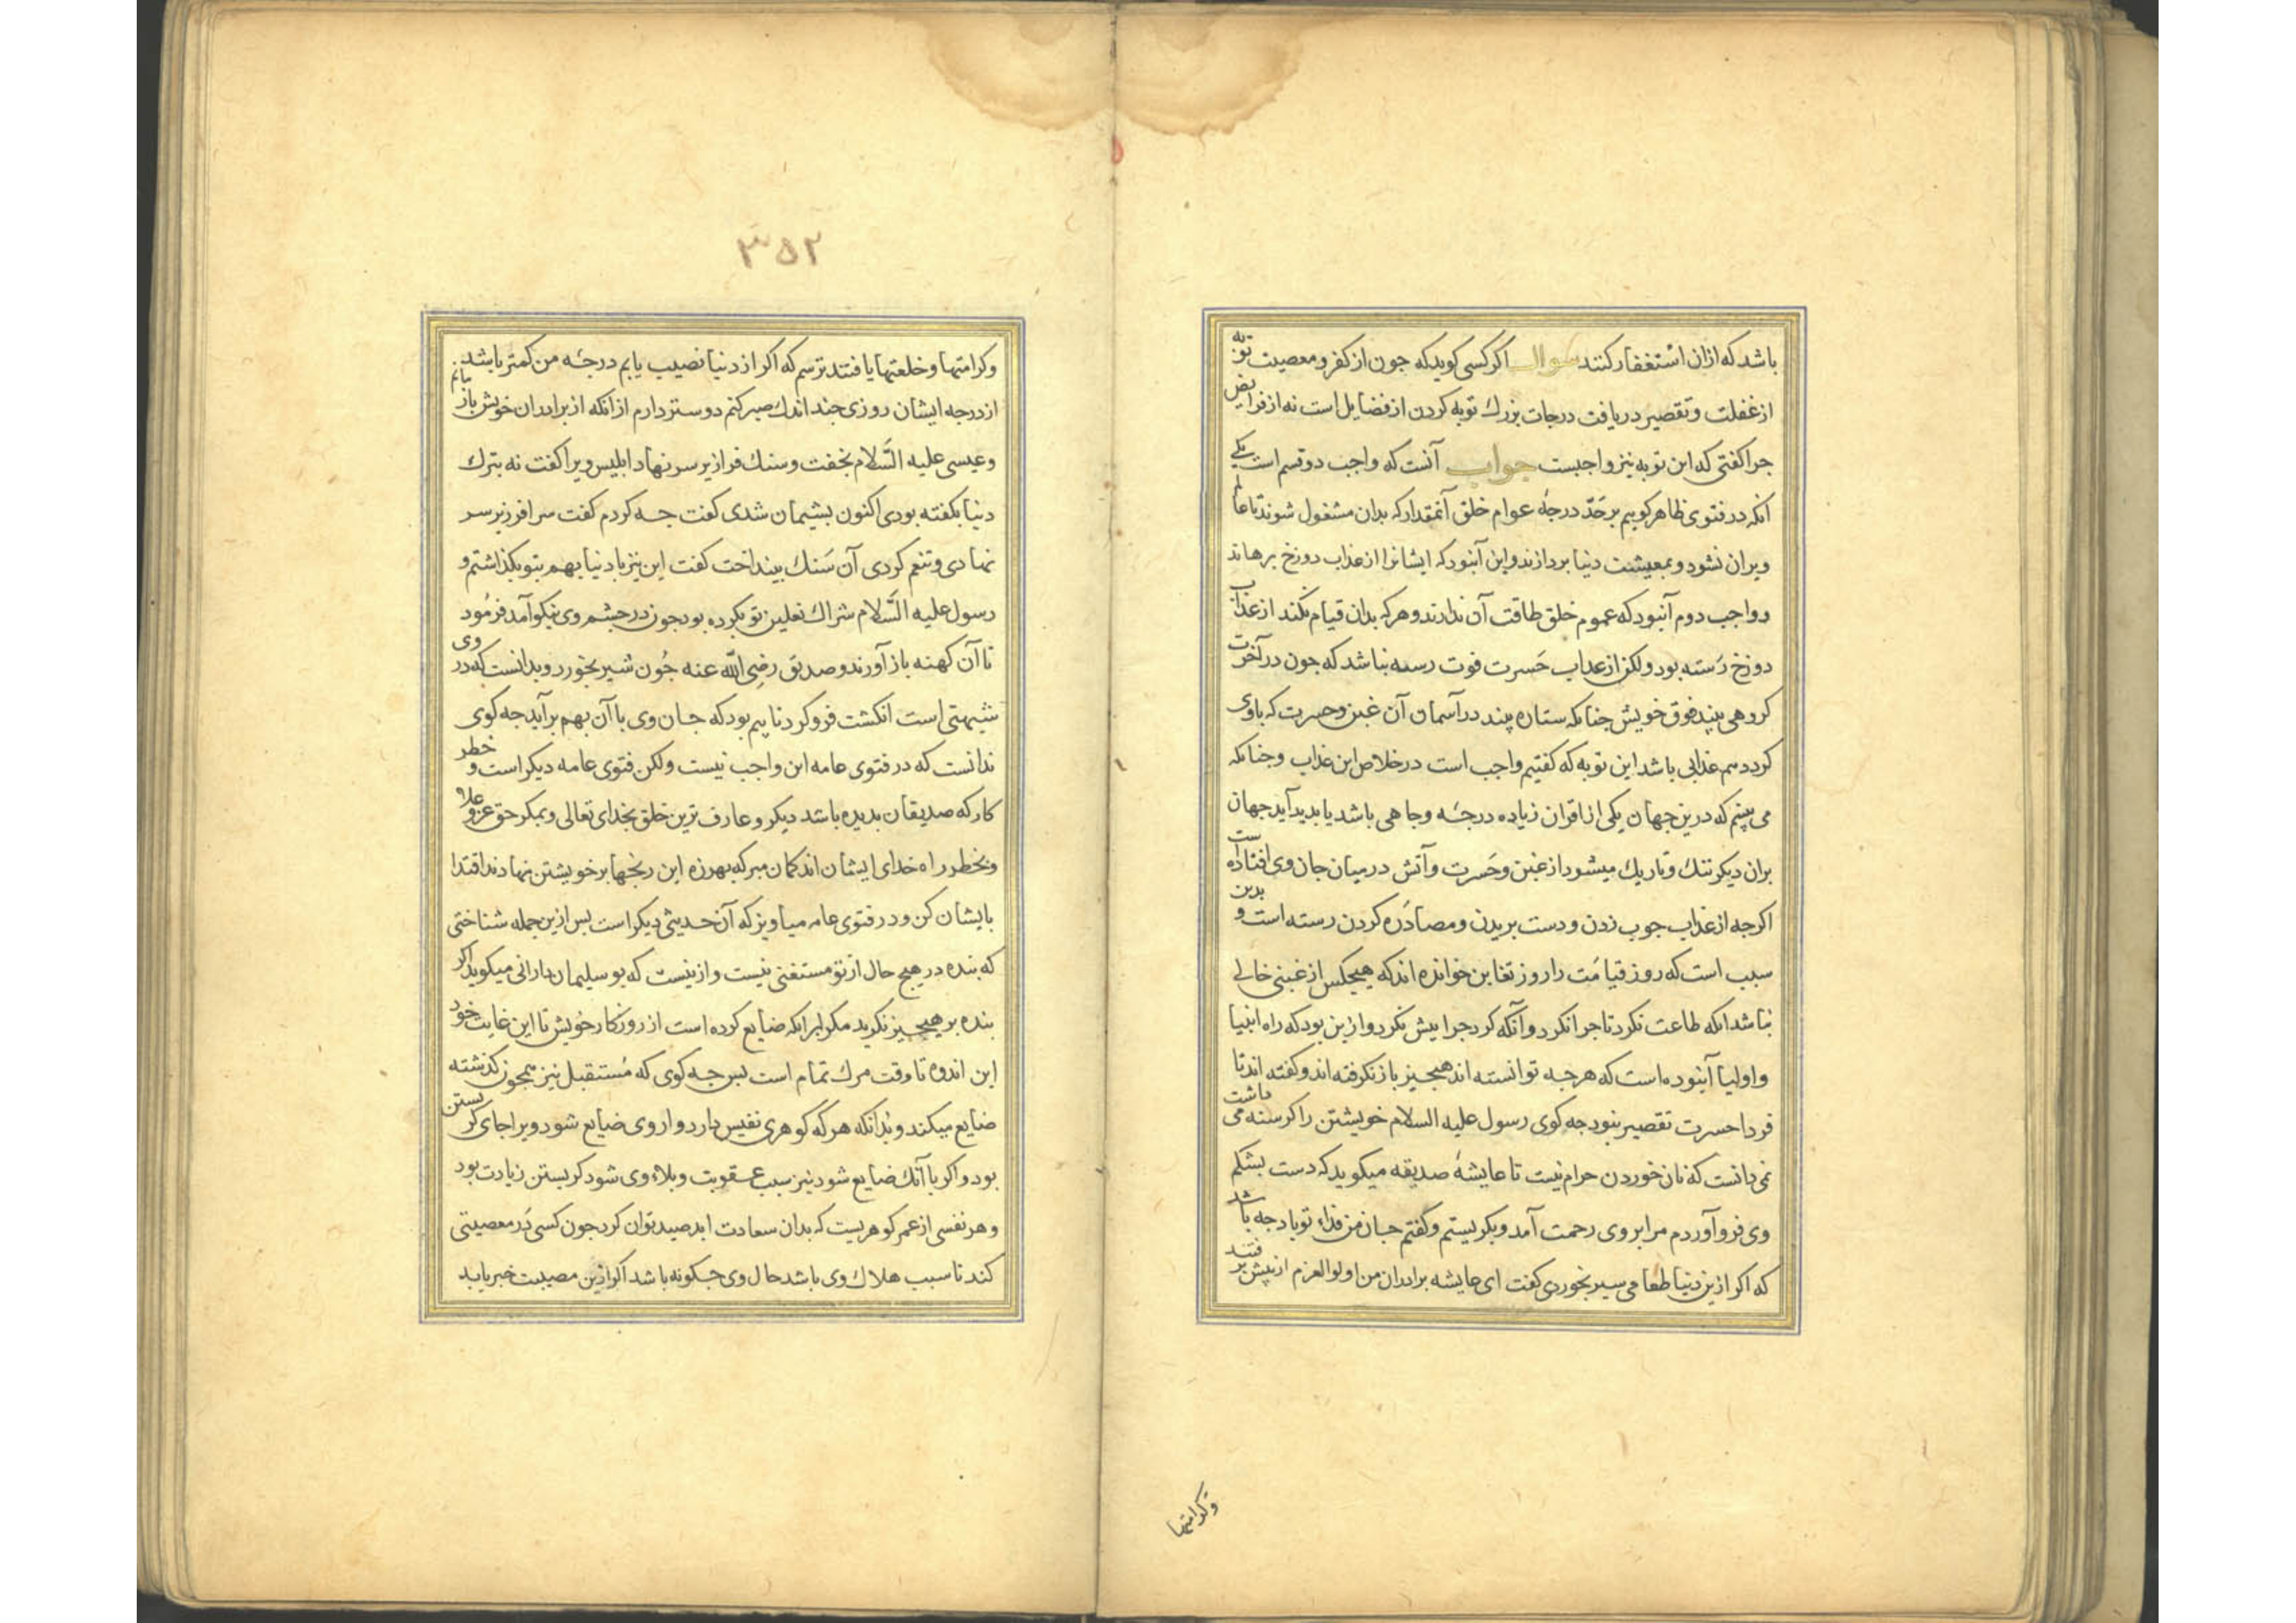 باشد که ازان استغفار کنند سوال اکر کسی کوید که جون از کفر و معصیت توبه
از غفلت و تقصیر در یافت درجات بزرك توبه کردن از فضایل است نه از فرایض
جرا کفتی که این توبه نیز واجبست جواب آنست که واجب دو قسم است یکی
انکه در فتوی ظاهر کوییم بر حدّ درجهٔ عوام خلق آنمقدار که بدان مشغول شوند تا عالم
ویران نشود و بمعیشت دنیا بردازند و این آنبود که ایشانرا از عذاب دوزخ برهاند
و واجب دوم آنبود که عموم خلق طاقت آن ندارند و هر که بدان قیام نکند از عذاب
دوزخ رَسته بود ولکن از عذاب حَسرت فوت رسته نباشد که جون در آخرت
کروهی بیند فوق خویش جنانکه ستاره بیند در آسمان آن غبن و حسرت که باوی
کردد هم عذابی باشد این توبه که کفتیم واجب است در خلاص این عذاب و جنانکه
می بینم که درین جهان یکی از اقران زیاده درجهٔ و جاهی باشد یا بدید آید جهان
بران دیکر تنك و تاریك میشود از غبن و حَسرت و آتش در میان جان وی افتاده است
اکرجه از عذاب جوب زدن و دست بریدن و مصادَره کردن رسته است و بدین
سبب است که روز قیامَت را روز تغابن خوانده اند که هیجکس از غبنی خالی
نباشد انکه طاعت نکرد تا جرا نکرد و آنکه کرد جرا بیش نکرد و ازین بود که راه انبیا
و اولیا آنبوده است که هرجه توانسته اند هیجیز باز نکرفته اند و کفته اند تا
فردا حسرت تقصیر نبود جه کوی رسول علیه السلام خویشتن را کرسنه می داشت
نمی دانست که نان خوردن حرام نیست تا عایشهٔ صدیقه میکوید که دست بشکم
وی فرو آوردم مرا بر وی رحمت آمد و بکریستم و کفتم جان من فداء تو باد جه باشد
که اکر ازین دنیا طعامی سیر بخوردی کفت ای عایشه برادران من اولوالعزم از پیش بر فتند
وکرامتها
۳۵۲
وکرامتها و خلعتها یافتند ترسم که اکر از دنیا نصیب یابم درجهٔ من کمتر باشد
از درجه ایشان روزی جند اندك صبر کنم دوستر دارم از آنکه از برادران خویش باز مانم
وعیسی علیه السَّلام بخفت و سنك فرا زیر سر نهاد ابلیس ویرا کفت نه بترك
دنیا بکفته بودی اکنون بشیمان شدی کفت جه کردم کفت سر افرزیر سر
نهادی و تنعم کردی آن سَنك بینداخت کفت این نیز با دنیا بهم بتو بکذاشتم و
رسول علیه السَّلام شراك نعلین نو بکرده بود جون در جشم وی نیکو آمد فرمُود
تا آن کهنه باز آورند و صدیق رضی اللّه عنه جُون شیر بخورد و بدانست که در وی
شبهتی است انکشت فرو کرد تا بیم بود که جان وی با آن بهم برآید جه کوی
ندانست که در فتوی عامه این واجب نیست ولکن فتوی عامه دیکر است و خطر
کار که صدیقان بدیده باشد دیکر و عارف ترین خلق بخدای تعالی و بمکر حق عز و علا
و بخطر راه خدای ایشان اند کمان مبر که بهرزه این رنجها بر خویشتن نهادند اقتدا
بایشان کن و در فتوی عامه میاویز که آن حدیثی دیکر است بس ازین جمله شناختی
که بنده در هیج حال از تو مستغنی نیست و ازینست که بو سلیمان دارانی میکوید اکر
بنده بر هیجیز نکرید مکر برانکه ضایع کرده است از روزکار خُویش تا این غایت خود
این اندوه تا وقت مرك تمام است بس جه کوی که مُستقبل نیز همجون کذشته
ضایع میکند و بدانکه هر که کوهری نفیس دارد و از وی ضایع شود ویرا جای کریستن
بود و اکر با آنك ضایع شود نیز سبب عقوبت و بلاء وی شود کریستن زیادت بود
و هر نفسی از عمر کوهریست که بدان سعادت ابد صید توان کرد جون کسی دَر معصیتی
کند تا سبب هلاك وی باشد حال وی جکونه باشد اکر ازین مصیبت خبر یابد